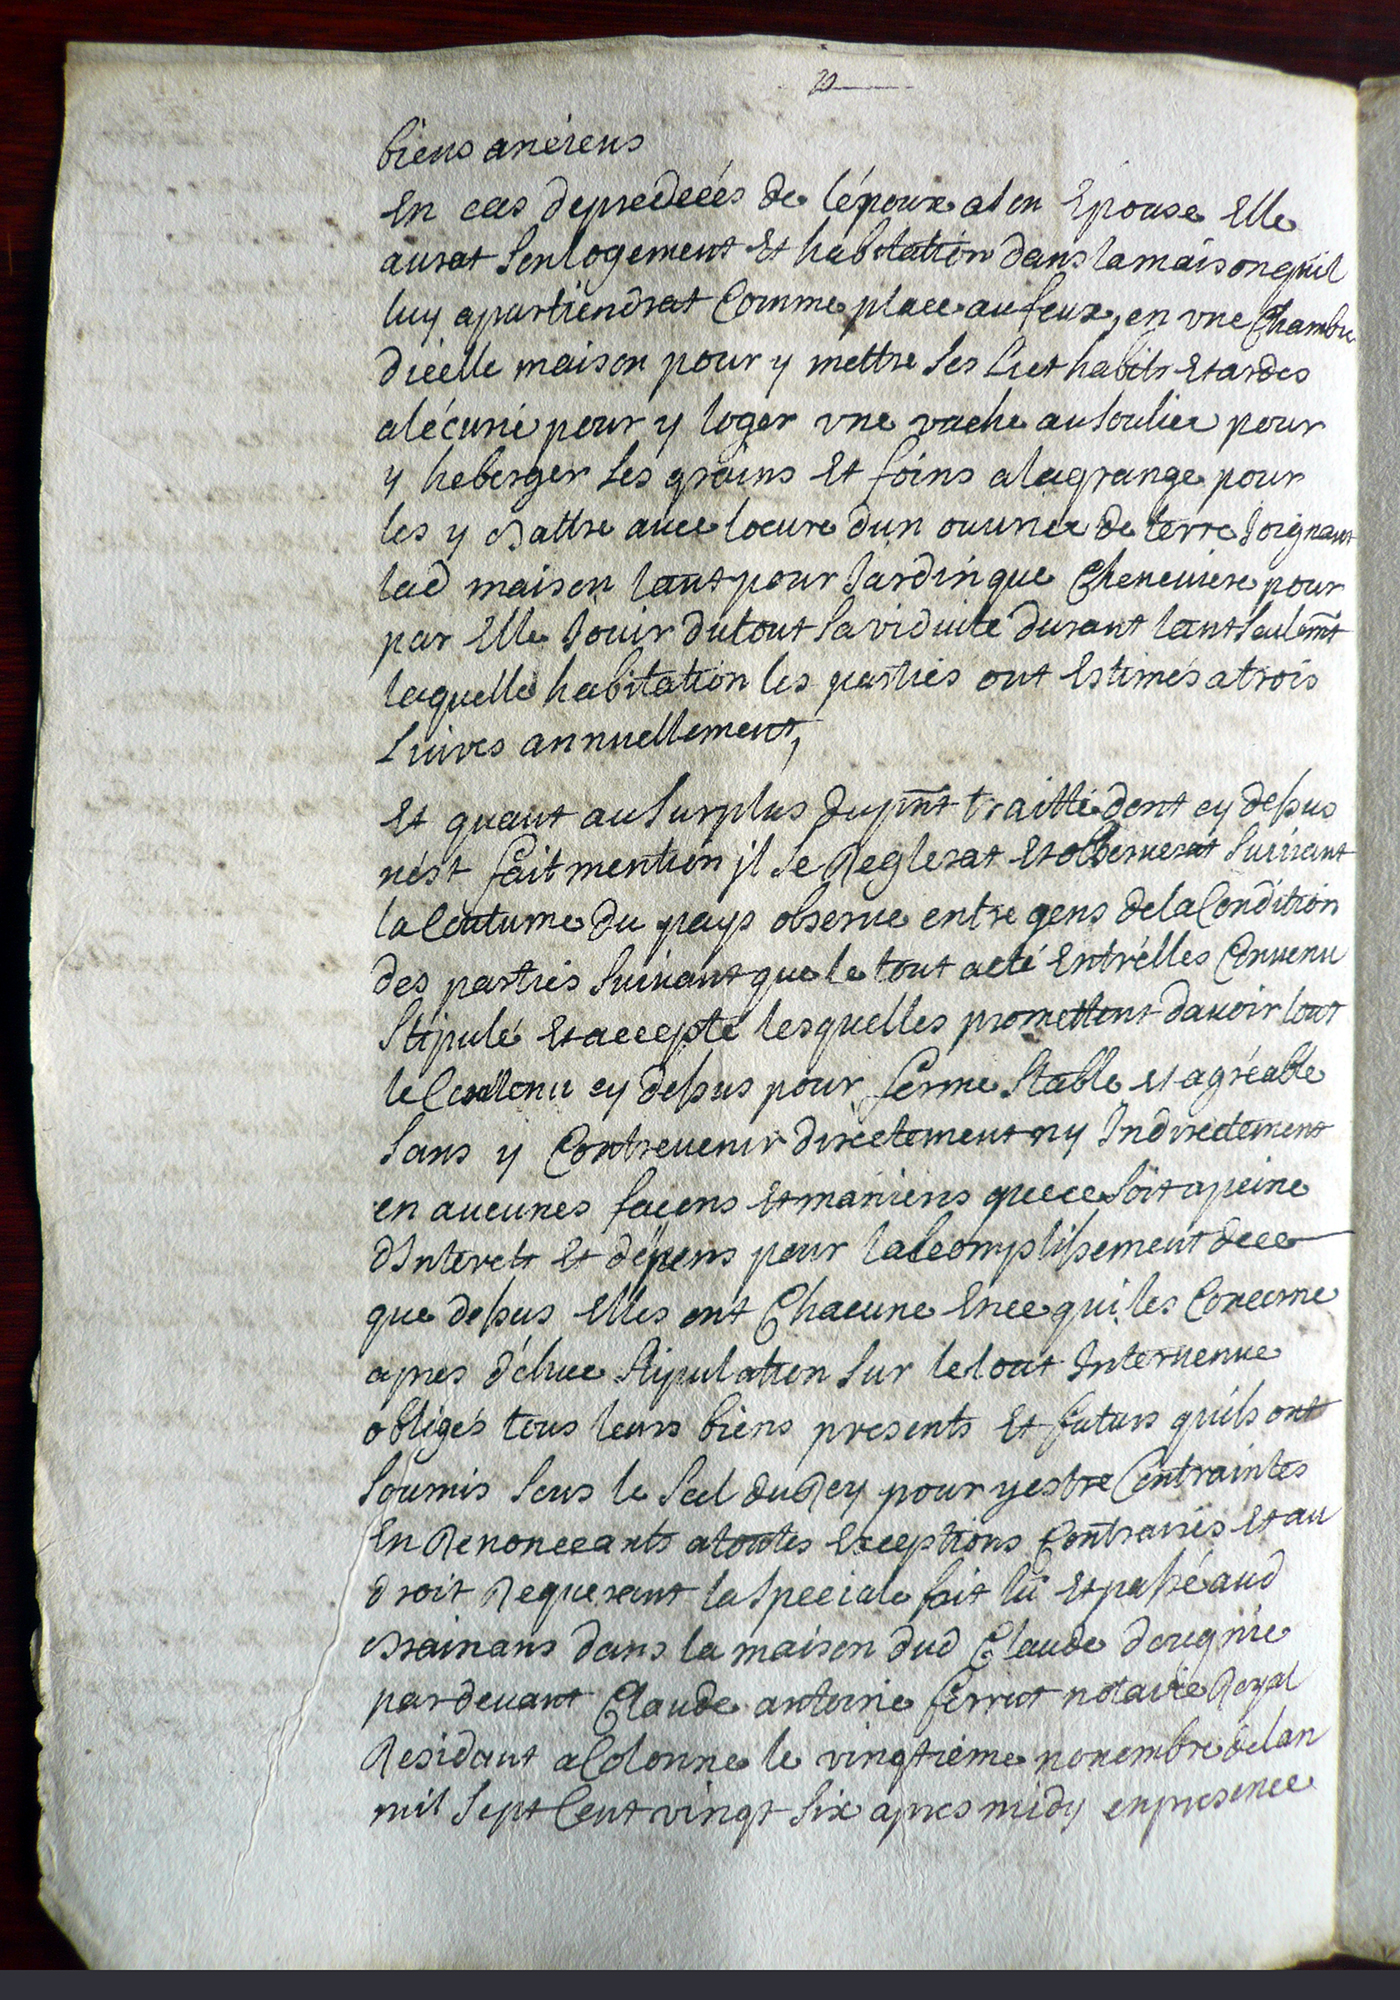 biens anciens
En cas de predecés de lépoux a son Epouse Elle
aurat son logement Et habitation dans la maison quil
luy apartiendrat Comme place au feux, en vne Chambre
dicelle maison pour y mettre ses Lict habits Et ardes
alécurie pour y loger vne vache au soulier pour
y heberger ses grains Et foins a la grange pour
les y Battre avec locure dun ouurier de terre Joignant
lad maison tant pour Jardin que Cheneuiere pour
par Elle Jouir du tout sa viduité durant tant seulemt
laquelle habitation les parties ont Estimés a trois
Liures annuellement,
Et quant au surplus du pnt traitté dont cy dessus
nést fait mention jl se Reglerat Et obseruerat suiuant
la Coutume du pays obserue entre gens de la Condition
des parties suiuant que le tout a eté Entrélles Conuenu
Stipulé Et accepté lesquelles promettent dauoir tout
le Contenu cy dessus pour ferme Stable et agréable
sans y Contreuenir directement ny Indirectement
en aucunes facons Et maniers que ce soit a peine
dInterets Et dépens pour laccomplissement de ce
que dessus Elles ont Chacune En ce qui les Concerne
apres d'éhue Stipulation sur le tout Interuenue
obligés tous leurs biens presents Et futurs quils ont
soumis sous le Scel du Roy pour y estre Contraintes
En Renonceants a toutes Exceptions Contraires Et au
droit Requerant la speciale fait lu Et passé aud
Brainans dans la maison dud Claude
pardeuant Claude antoine ferriot notaire Royal
Residant a Colonne le vingtiéme nouembre de lan
mil sept Cent vingt six apres midy en presence